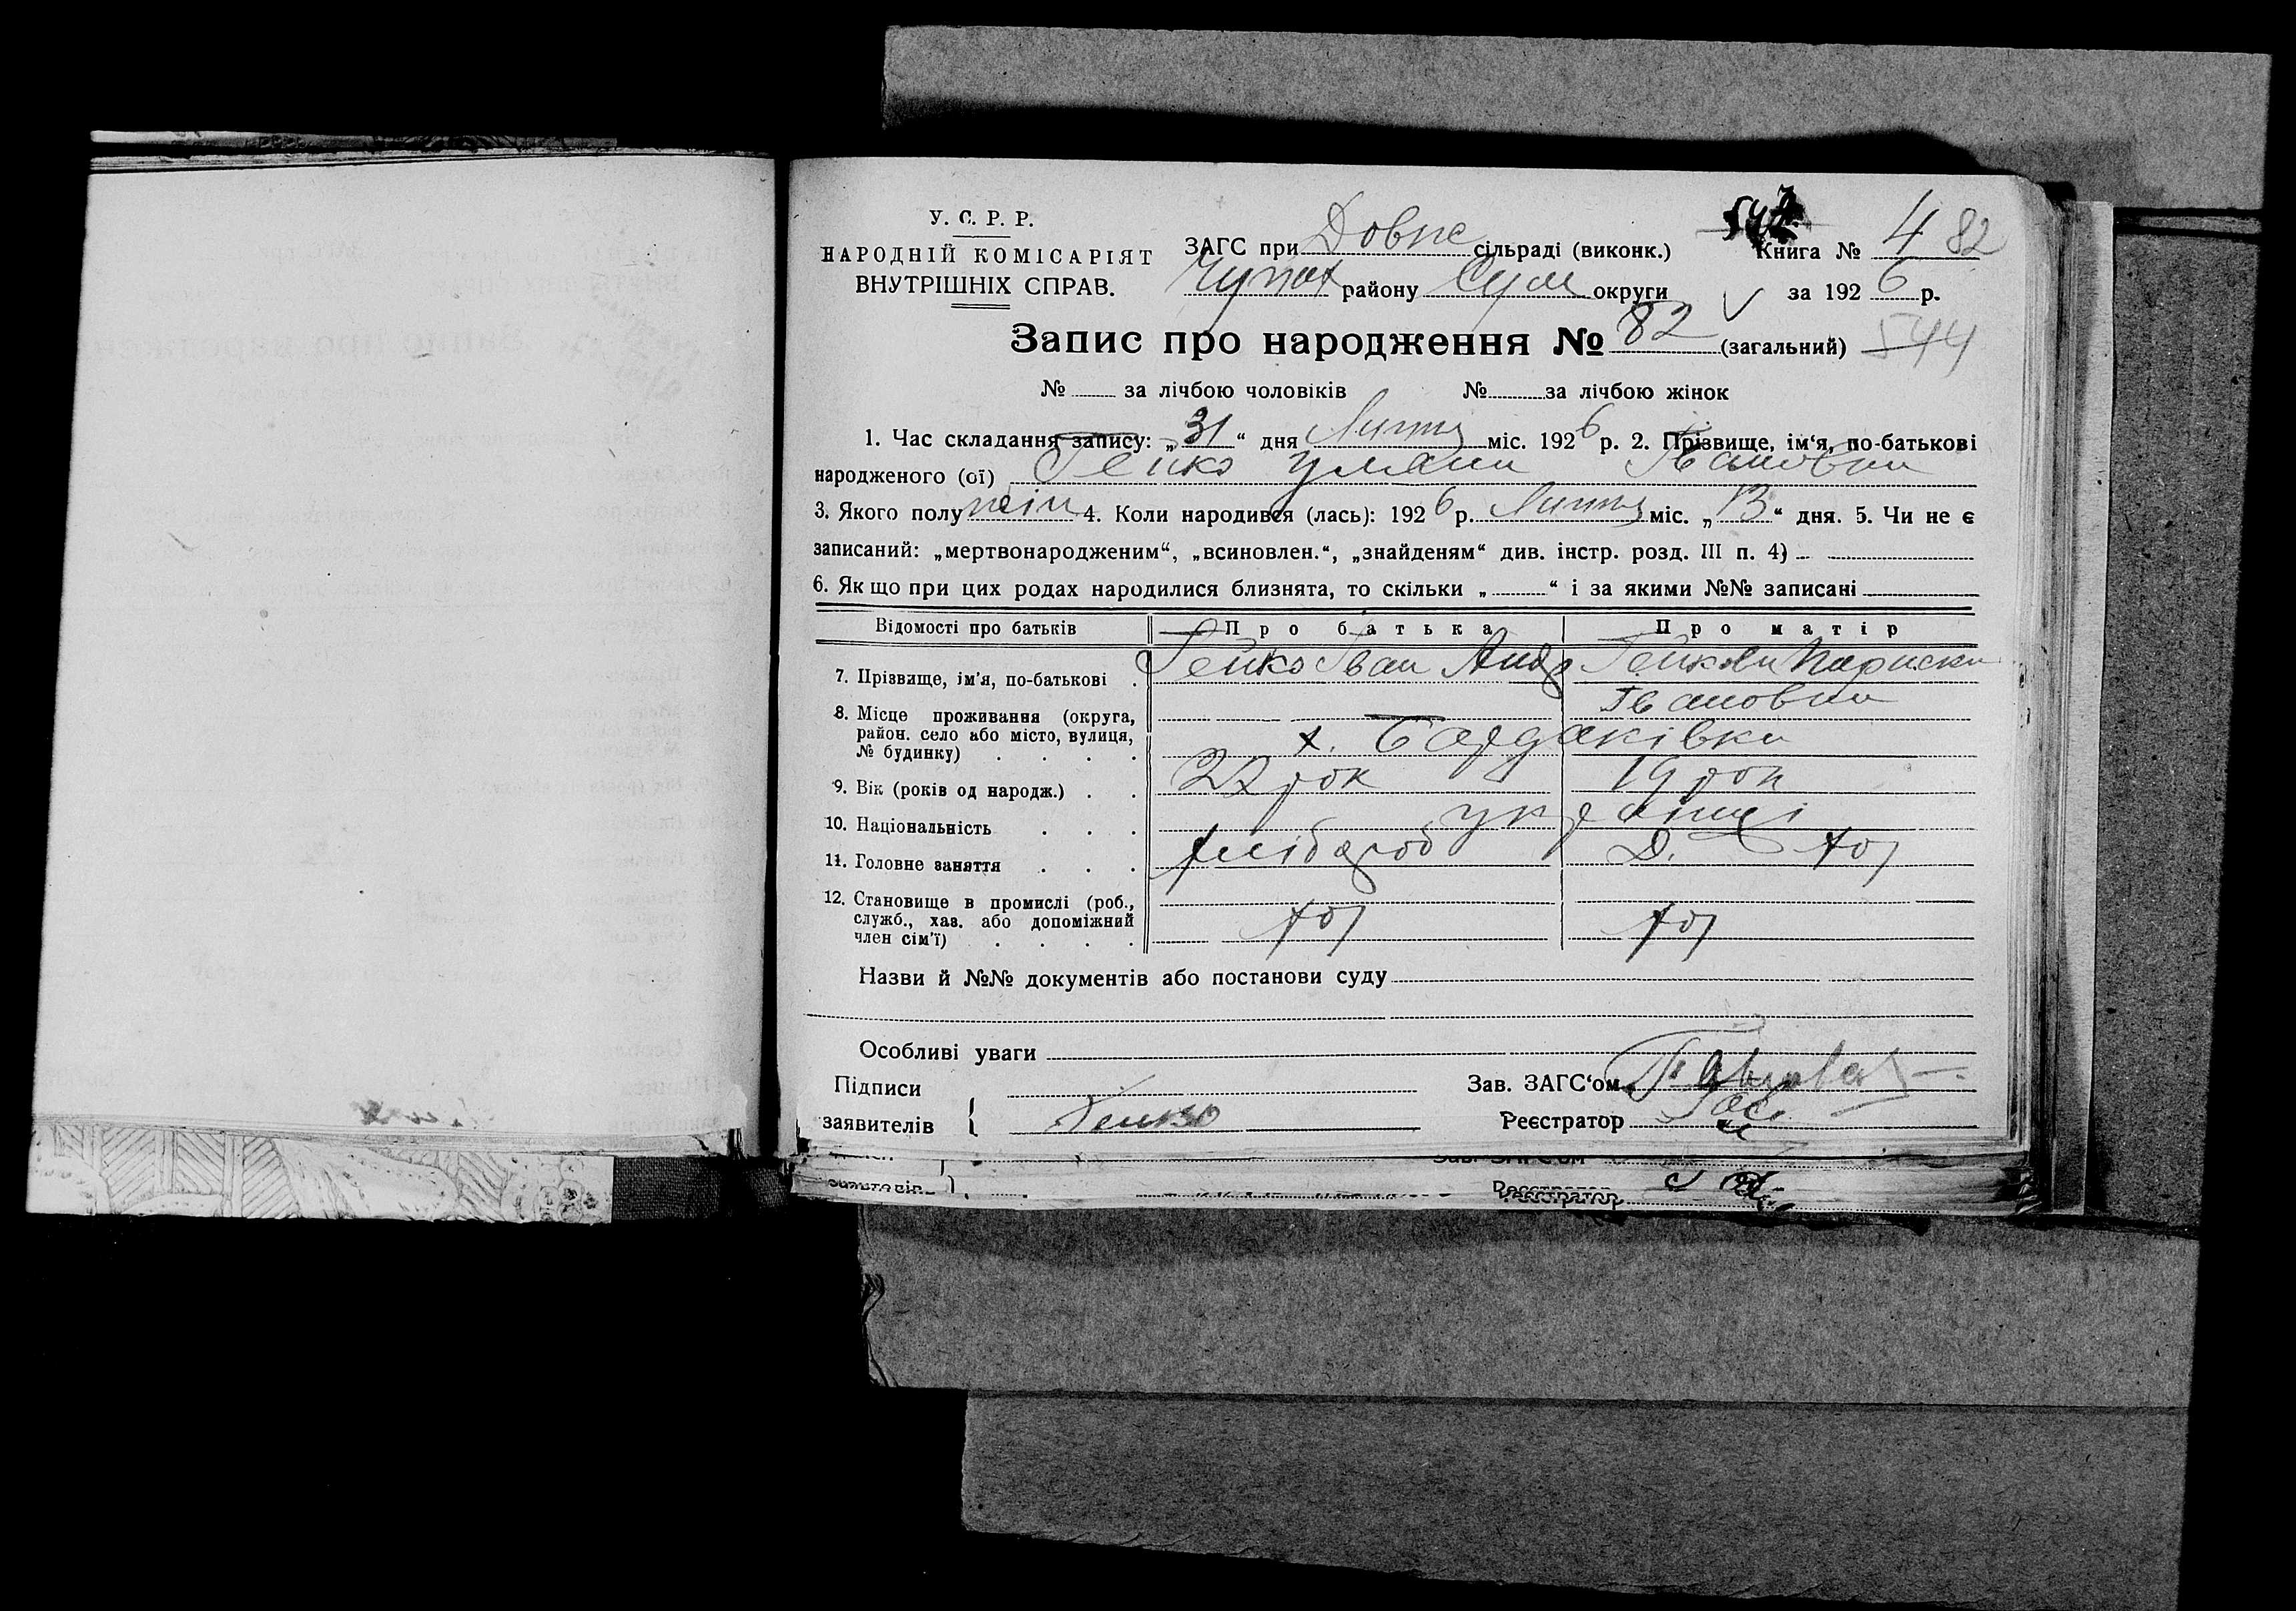 У. С. Р. Р.
НАРОДНІЙ КОМІСАРІЯТ
ВНУТРІШНІХ СПРАВ.
ЗАГС при Довже сільраді (виконк.) Книга № 4 82
Чупах району Сум округи за 1926 р.
Запис про народження № 82 (загальний) 544
№ за лічбою чоловіків № за лічбою жінок
1. Час складання запису: „31“ дня Липня міс. 1926 р. 2. Прізвище, ім‘я, по-батькові
народженого (ої) Гейко Уляна Івановна
3. Якого полу жін 4. Коли народився (лась): 1926 р. Липня міс. „13“ дня. 5. Чи не є
записаний: „мертвонародженим“, „всиновлен.“, „знайденям“ див. інстр. розд. III п. 4)
6. Якщо при цих родах народилися близнята, то скільки „ “ і за якими №№ записані
Відомості про батьків Про батька Про матір
7. Прізвище, ім'я, по-батькові . Гейко Іван Андр Гейкова Параска
Івановна
8. Місце проживання (округа,
район. село або місто, вулиця,
№ будинку) . . . . х. Бардаківка
9. Вік (років од народж.) . . 22 рок 19 рок
10. Національність . . . українці
11. Головне заняття . . . хлібороб Д. хоз
12. Становище в промислі (роб.,
служб., хаз. або допоміжний
член сім'ї) . . . . хоз хоз
Назви й №№ документів або постанови суду
Особливі уваги
Підписи Зав. ЗАГС‘ом
заявителів { Гейко Реєстратор
Зав. ЗАГС'ом
заявителів } Реєстратор
Реєстратор